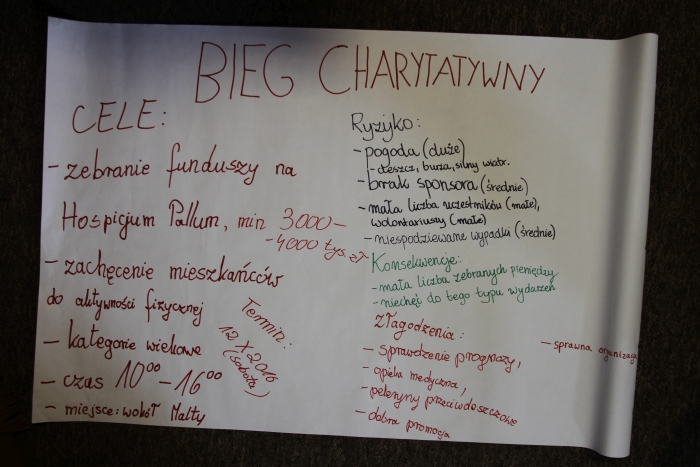 BIEG CHARYTATYWNY
CELE:
- zebranie funduszy na
Hospicjum Pallum, min 3000-
-4000 tys. zł
- zachęcenie mieszkańców
do aktywności fizycznej
- kategorie wiekowe
- czas 10⁰⁰ - 16⁰⁰
- miejsce: wokół Malty
Termin:
12 X 2016
(sobota)
Ryzyko:
- pogoda (duże)
- deszcz, burza, silny wiatr.
- brak sponsora (średnie)
- mała liczba uczestników (małe),
wolontariuszy (małe)
- niespodziewane wypadki (średnie)
Konsekwencje:
- mała liczba zebranych pieniędzy
- niechęć do tego typu wydarzeń
Złagodzenia:
- sprawdzenie prognozy,
- opieka medyczna,
- peleryny przeciwdeszczowe
- dobra promocja
- sprawna organizacja